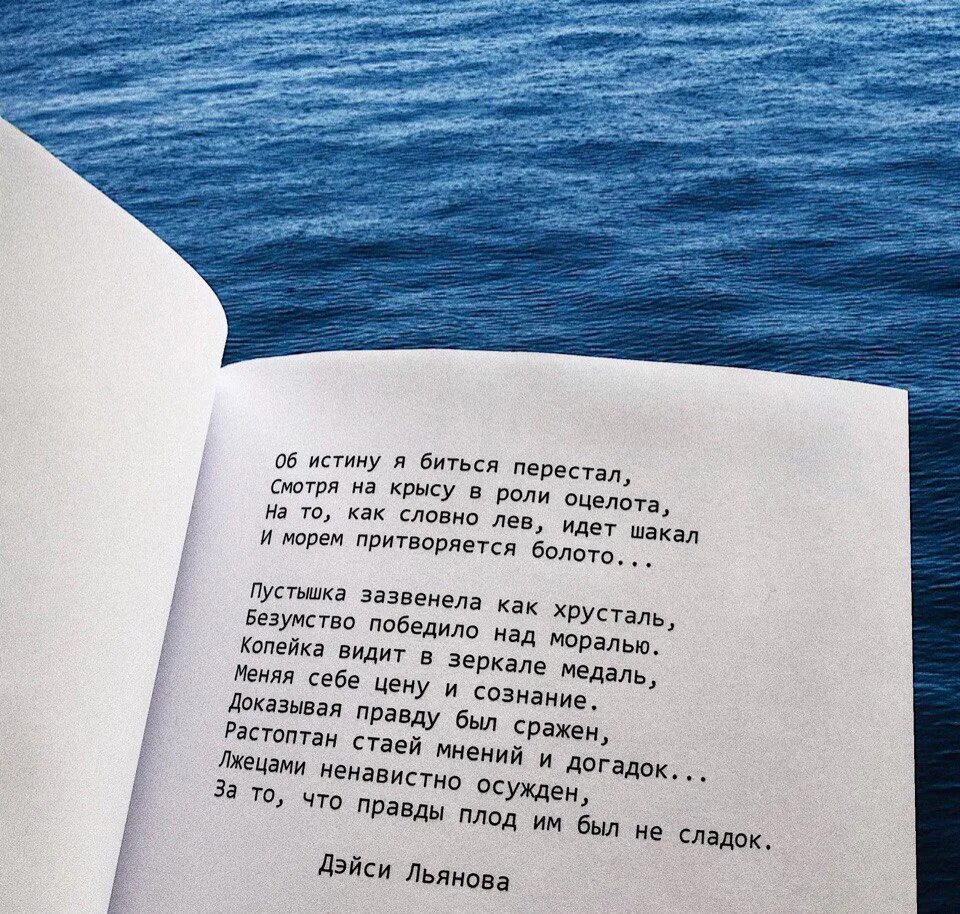 Об истину я биться перестал,
Смотря на крысу в роли оцелота,
На то, как словно лев, идет шакал
И морем притворяется болото...
Пустышка зазвенела как хрусталь,
Безумство победило над моралью.
Копейка видит в зеркале медаль,
Меняя себе цену и сознание.
Доказывая правду был сражен,
Растоптан стаей мнений и догадок...
Лжецами ненавистно осужден,
За то, что правды плод им был не сладок.
Дэйси Льянова